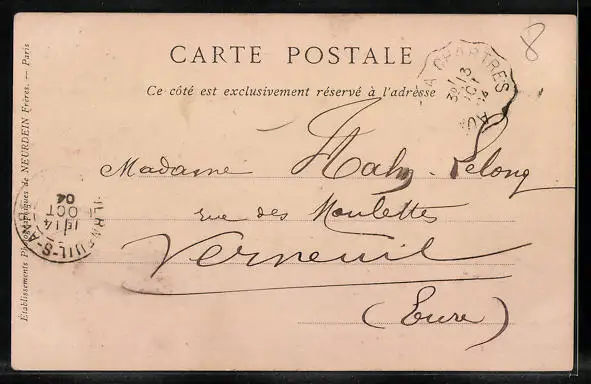 CARTE POSTALE
Ce côté est exclusivement réservé à l'adresse
8
A CHARTRES
13
OCT
04
Madame Mahy-Lelong
rue des Moulettes
Verneuil
(Eure)
Établissements Photographiques de NEURDEIN Frères. — Paris
VERNEUIL-S-A
14
OCT
04